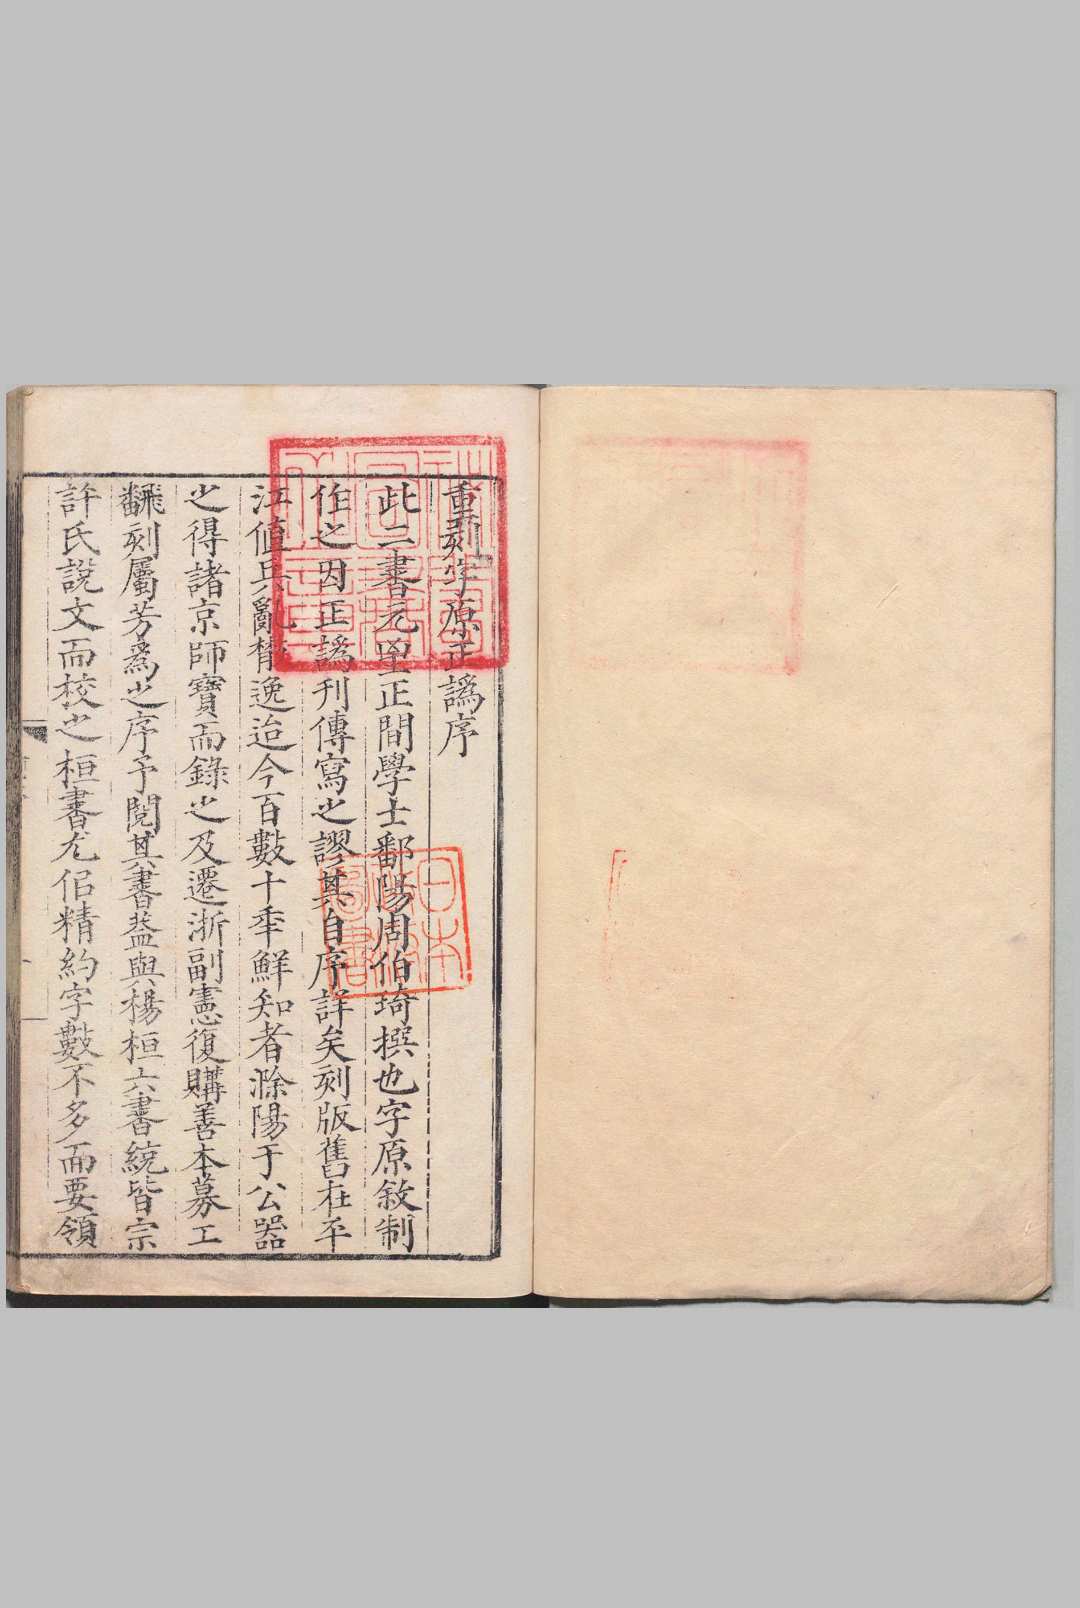 重刻字原正譌序
此二書元至正間學士鄱陽周伯琦撰也字原敘制
作之因正譌刊傳寫之謬其自序詳矣刻版舊在平
江值兵亂散逸迨今百數十年鮮知者滁陽于公器
之得諸京師寶而錄之及遷浙副憲復購善本募工
翻刻屬芳為之序予閱其書葢與楊桓六書統皆宗
許氏說文而校之桓書尤侣精約字數不多而要領
日本
圖書